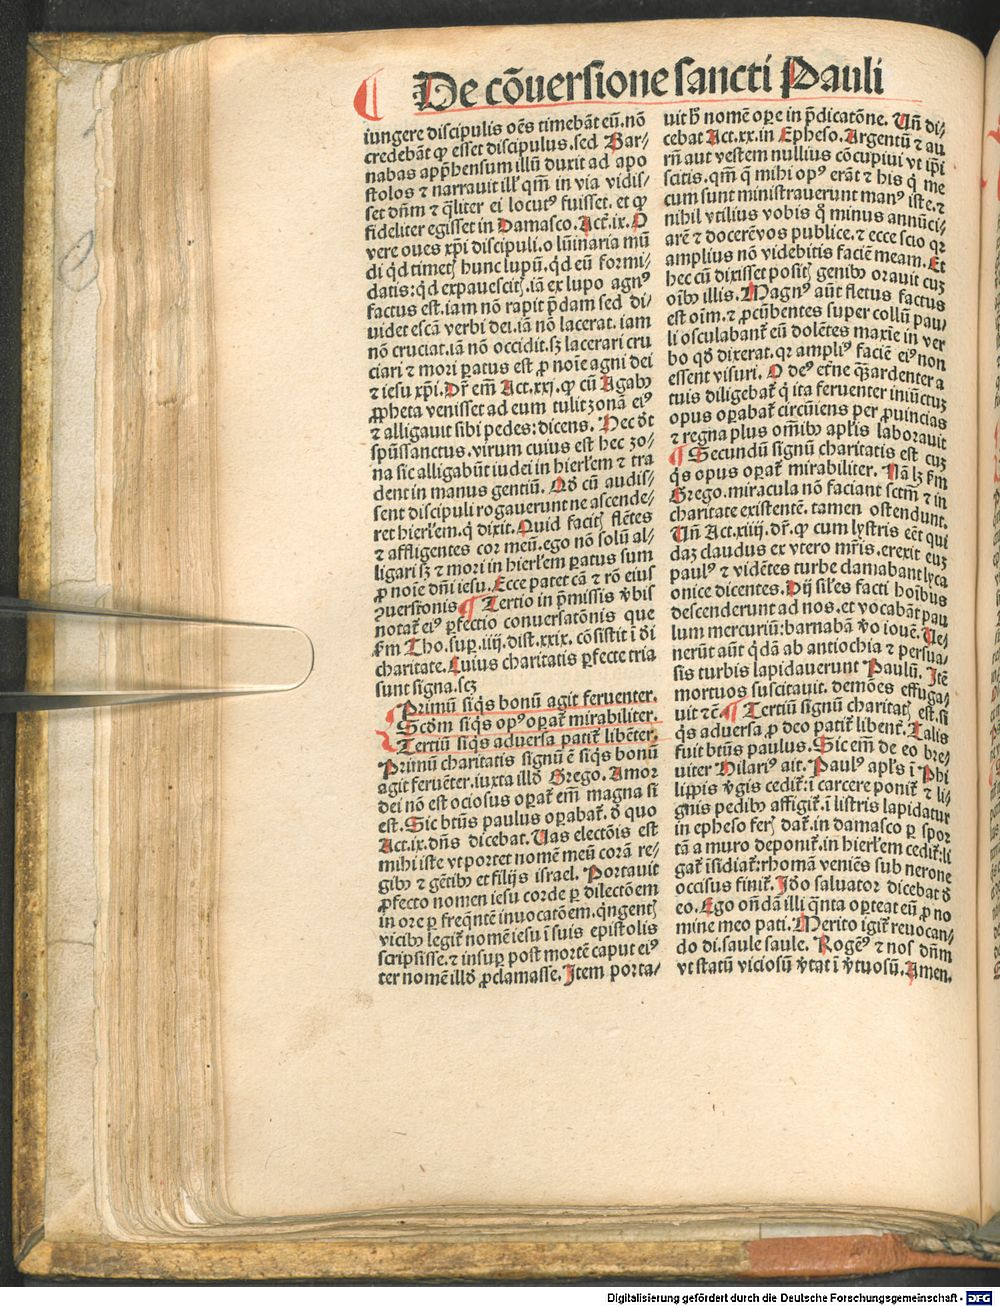 De cōuersione sancti Pauli
iungere discipulis oēs timebāt eū.nō
credebāt ꝙ esset discipulus.sed Bar⸗
nabas apprhensum illū duxit ad apo
stolos ⁊ narrauit ill' qm̄ in via vidis⸗
set dn̄m ⁊ q̄liter ei locutꝰ fuisset. et ꝙ
fideliter egisset in Damasco.Act̄.ix.O
vere oues xp̄i discipuli.o lūinaria mū
di qͥd timetꝭ hunc lupū.qͥd eū formi⸗
datis:qͥd expauescitꝭ.iā ex lupo agnꝰ
factus est.iam nō rapit p̄dam sed di⸗
uidet escā verbi dei.iā nō lacerat. iam
nō cruciat.iā nō occidit.sꝫ lacerari cru
ciari ⁊ mori paratus est ꝓ noīe agni dei
⁊ iesu xp̄i.Dr̄ em̄ Act.xxj.ꝙ cū Agabꝰ
ꝓpheta venisset ad eum tulit zonā eiꝰ
⁊ alligauit sibi pedes:dicens. Hec dt̄
spūssanctus.virum cuius est hec zo⸗
na sic alligabūt iudei in hierl̄em ⁊ tra
dent in manus gentiū. Qd̄ cū audis⸗
sent discipuli rogauerunt ne ascende⸗
ret hierl̄em.qͥ dixit.Quid facitꝭ flētes
⁊ affligentes cor meū.ego nō solū al⸗
ligari sꝫ ⁊ mori in hierl̄em ꝑatus sum
ꝓ noīe dn̄i iesu.Ecce patet cā ⁊ rō eius
ꝯuersionis ¶ Tertio in p̄missis v̄bis
notat̄ eiꝰ ꝑfectio conuersatōnis que
s̄m Tho.suꝑ.iiij.dist.xxix.cōsistit ī di
charitate.Cuius charitatis ꝑfecte tria
sunt signa.scꝫ
Primū siqͥs bonū agit feruenter.
Scd̄m siqͥs opꝰ oꝑat̄ mirabiliter.
Tertiū siqͥs aduersa patit̄ libēter.
Primū charitatis signū ē siqͥs bonū
agit feruēter.iuxta illd̄ Grego. Amor
dei nō est ociosus oꝑat̄ em̄ magna si
est.Sic btūs paulus oꝑabat̄. d̄ quo
Act.ix.dn̄s dicebat. Uas electōis est
mihi iste vt portet nomē meū corā re⸗
gibꝰ ⁊ gētibꝰ et filijs israel. Portauit
ꝓfecto nomen iesu corde ꝑ dilectōem
in ore ꝑ freq̄ntē inuocatōem.qͥngentꝭ
vicibꝰ legit̄ nomē iesu ī suis epistolis
scripsisse.⁊ insuꝑ post mortē caput eiꝰ
ter nomē illd̄ ꝓclamasse. Item porta⸗
uit hͦ nomē oꝑe in p̄dicatōne. Un̄ di⸗
cebat Act.xx.in Epheso. Argentū ⁊ au
rū aut vestem nullius cōcupiui vt ip̄i
scitis.qm̄ q̄ mihi opꝰ erāt ⁊ his qͥ me
cum sunt ministrauerunt manꝰ iste.⁊
nihil vtilius vobis qͦ minus annūci⸗
arē ⁊ docerē vos publice.⁊ ecce scio qꝛ
amplius nō videbitis faciē meam. Et
hec cū dixisset positꝭ genibꝰ orauit cuꝫ
oībꝰ illis. Magnꝰ aūt fletus factus
est oīm.⁊ ꝓcūbentes super collū pau⸗
li osculabant̄ eū dolētes maxīe in ver
bo qd̄ dixerat.qꝛ ampliꝰ faciē eiꝰ non
essent visuri. O deꝰ et̄ne qͣꝫ ardenter a
tuis diligebat̄ qͥ ita feruenter iniūctuꝫ
opus oꝑabat̄ circūiens per ꝓuincias
⁊ regna plus om̄ibꝰ apl̄is laborauit
¶ Secundū signū charitatis est cuꝫ
qͥs opus oꝑat̄ mirabiliter. Nā lꝫ s̄m
Grego.miracula nō faciant sctm̄ ⁊ in
charitate existentē. tamen ostendunt.
Un̄ Act.xiiij.dr̄.ꝙ cum lystris eēt qui
daꝫ claudus ex vtero mr̄is.erexit euꝫ
paulꝰ ⁊ vidētes turbe clamabant lyca
onice dicentes. Dij sil̄es facti hoībus
descenderunt ad nos.et vocabāt pau
lum mercuriū:barnabā v̄o iouē. Ue⸗
nerūt aūt qͥdā ab antiochia ⁊ persua⸗
sis turbis lapidauerunt Paulū. Itē
mortuos suscitauit. demōes effuga⸗
uit ⁊c̄. ¶ Tertiū signū charitatꝭ est.si
qͥs aduersa ꝓ deo patit̄ libent̄. Talis
fuit btūs paulus. Sic em̄ de eo bre⸗
uiter Hilariꝰ ait. Paulꝰ apl̄s ī Phi
lippis v̄gis cedit̄:ī carcere ponit̄ ⁊ li⸗
gnis pedibꝰ affigit̄.ī listris lapidatur
in epheso ferꝭ dat̄.in damasco ꝑ spor
tā a muro deponit̄.in hierl̄em cedit̄:li
gat̄ īsidiat̄:rhomā veniēs sub nerone
occisus finit̄. Id̄o saluator dicebat d̄
eo. Ego on̄dā illi qͣnta oꝑteat eū ꝓ no
mine meo pati. Merito igit̄ reuocan⸗
do di.saule saule. Rogēꝰ ⁊ nos dn̄m
vt statū viciosū v̄tat ī v̄tuosū. Amen.
Digitalisierung gefördert durch die Deutsche Forschungsgemeinschaft - DFG